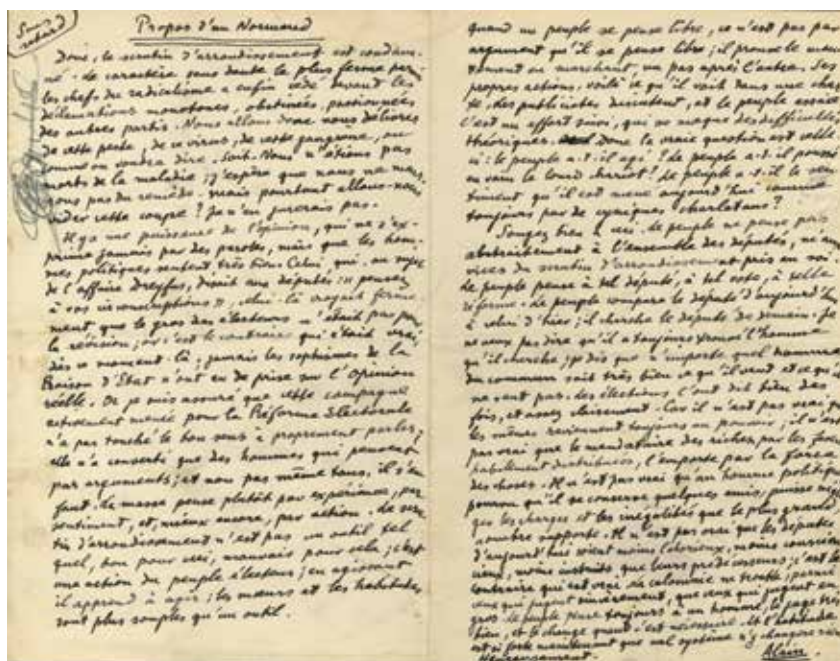 Sans
retard
Propos d'un Normand
Donc, le scrutin d'arrondissement est condam-
né. Le caractère sans doute le plus ferme parmi
les chefs du radicalisme a enfin cédé devant les
déclamations monotones, obstinées, passionnées
des autres partis. Nous allons donc nous délivrer
de cette peste, de ce virus, de cette gangrène, ou
comme on voudra dire. Soit. Nous n'étions pas
morts de la maladie ; j'espère que nous ne mour-
rons pas du remède. Mais pourtant allons-nous
vider cette coupe ? Je n'en jurerais pas.
Il y a une puissance de l'opinion, qui ne s'ex-
prime jamais par des paroles, mais que les hom-
mes politiques sentent très bien. Celui, qui, au sujet
de l'affaire Dreyfus, disait aux députés : « pensez
à vos circonscriptions », celui-là croyait ferme-
ment, que le gros des électeurs n'était pas pour
la révision ; or c'est le contraire qui était vrai
dès ce moment-là ; jamais les sophismes de la
Raison d'Etat n'ont eu de prise sur l'Opinion
réelle. Or je suis assuré que cette campagne
activement menée pour la Réforme Electorale
n'a pas touché le bon sens à proprement parler,
elle n'a converti que des hommes qui pensent
par arguments ; et non pas même tous, il s'en
faut. La masse pense plutôt par expérience, par
sentiment, et, mieux encore, par action. Le scru-
tin d'arrondissement n'est pas un outil tel
quel, bon pour ceci, mauvais pour cela ; c'est
une action du peuple électeur ; en agissant
il apprend à agir ; les mœurs et les habitudes
sont plus souples qu'un outil.
Quand un peuple se pense libre, ce n'est pas par
argument qu'il se pense libre ; il prouve le mou-
vement en marchant, un pas après l'autre. Ses
propres actions, voilà ce qu'il voit dans une chose
Les publicistes discutent, et le peuple essaie
C'est un effort suivi, qui se moque des difficultés
théoriques. Donc la vraie question est celle-
ci : le peuple a-t-il agi ? Le peuple a-t-il poussé
en vain le lourd chariot ? Le peuple a-t-il le sen-
timent qu'il est mené aujourd'hui comme
toujours par de cyniques charlatans ?
Songez bien à ceci. Le peuple ne pense pas
abstraitement à l'ensemble des députés, ni aux
vices du scrutin d'arrondissement pris en soi.
Le peuple pense à tel député, à tel vote, à telle
réforme. Le peuple compare le député d'aujourd'hui
à celui d'hier ; il cherche le député de demain. Je
ne veux pas dire qu'il a toujours trouvé l'homme
qu'il cherche ; je dis que n'importe quel homme
du commun sait très bien ce qu'il veut et ce qu'il
ne veut pas. Les élections l'ont dit bien des
fois, et assez clairement. Car il n'est pas vrai que
les mêmes reviennent toujours au pouvoir ; il n'est
pas vrai que le mandataire des riches par les
habilement distribuées, l'emporte par la force
des choses. Il n'est pas vrai qu'un homme politique
pourvu qu'il se conserve quelques amis, puisse
les charges et les inégalités que le plus grand
nombre supporte. Il n'est pas vrai que les députés
d'aujourd'hui soient moins laborieux, moins conscien-
cieux, moins instruits que leurs prédécesseurs ; c'est le
contraire qui est vrai. La calomnie ne trouble, parmi
ceux qui jugent sincèrement, que ceux qui jugent en
gros. Le peuple pense toujours à un homme, le juge très
bien, et le change quand c'est nécessaire. Et l'habitude
est si forte maintenant que nul système n'y changera rien
Heureusement.
Alain.